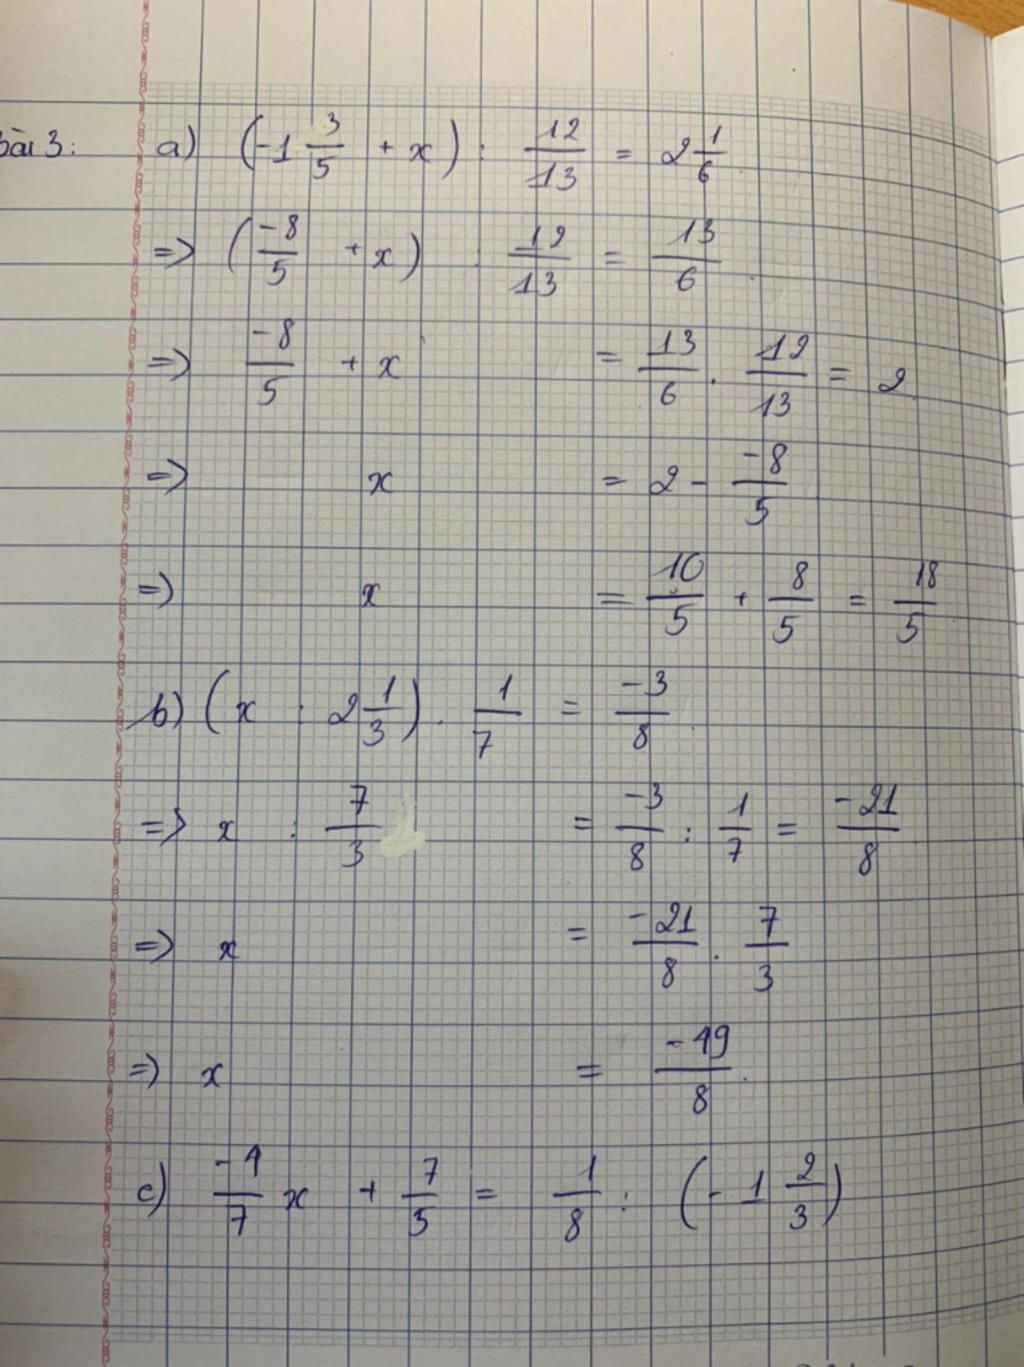 Bài 3: a) (-1 3/5 + x) : 12/13 = 2 1/6
=> (-8/5 + x) : 12/13 = 13/6
=> -8/5 + x = 13/6 . 12/13 = 2
=> x = 2 - -8/5
=> x = 10/5 + 8/5 = 18/5
b) (x : 2 1/3) . 1/7 = -3/8
=> x : 7/3 = -3/8 : 1/7 = -21/8
=> x = -21/8 . 7/3
=> x = -49/8
c) -4/7 x + 7/5 = 1/8 : (-1 2/3)